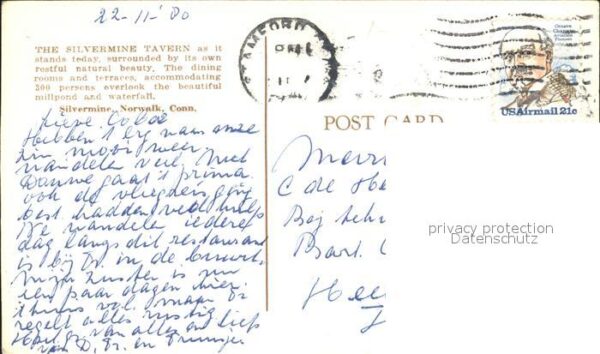 22-11-'80
THE SILVERMINE TAVERN as it
stands today, surrounded by its own
restful natural beauty. The dining
rooms and terraces, accommodating
300 persons overlook the beautiful
millpond and waterfall.
Silvermine, Norwalk, Conn.
POST CARD
STAMFORD
PM
USAirmail 21c
Lieve
Hebben 't erg naar onze
zin mooi weer,
wandelen veel, met
gaat 't prima
ook de vliegreis ging
best hadden veel hulp
We wandelen iedere
dag langs dit restaurant
is bij in de buurt.
Mijn zuster is nu
een paar dagen hier.
't huis vol, maar
regelt alles rustig
van alles en liefs
van en
Mevr
C de He
Bij
Bart.
Hee
privacy protection
Datenschutz